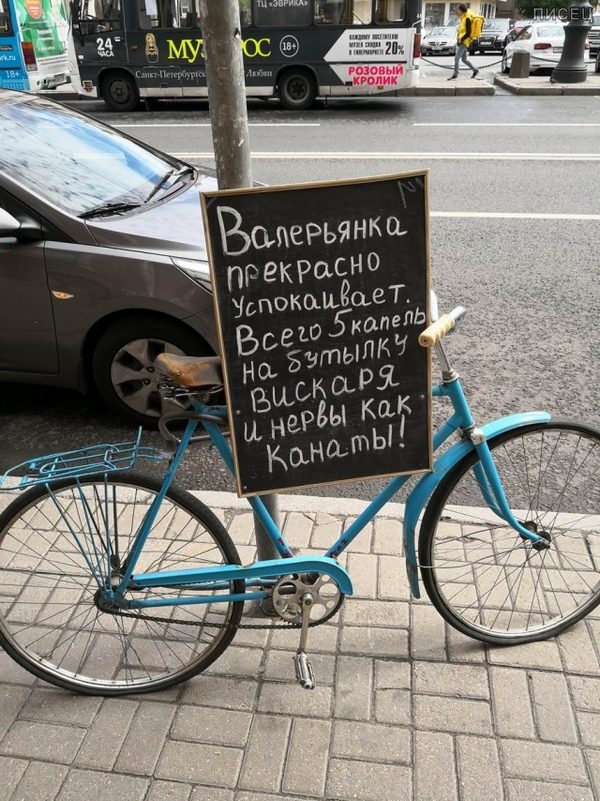 ПИСЕЦ
ТЦ «ЭВРИКА»
24
ЧАСА
18+
Санкт-Петербург
Любви
КАЖДОМУ ПОСЕТИТЕЛЮ
МУЗЕЯ СКИДКА
В ГИПЕРМАРКЕТЕ 20%
РОЗОВЫЙ
КРОЛИК
18+
Валерьянка
прекрасно
успокаивает.
Всего 5 капель
на бутылку
вискаря
и нервы как
канаты!